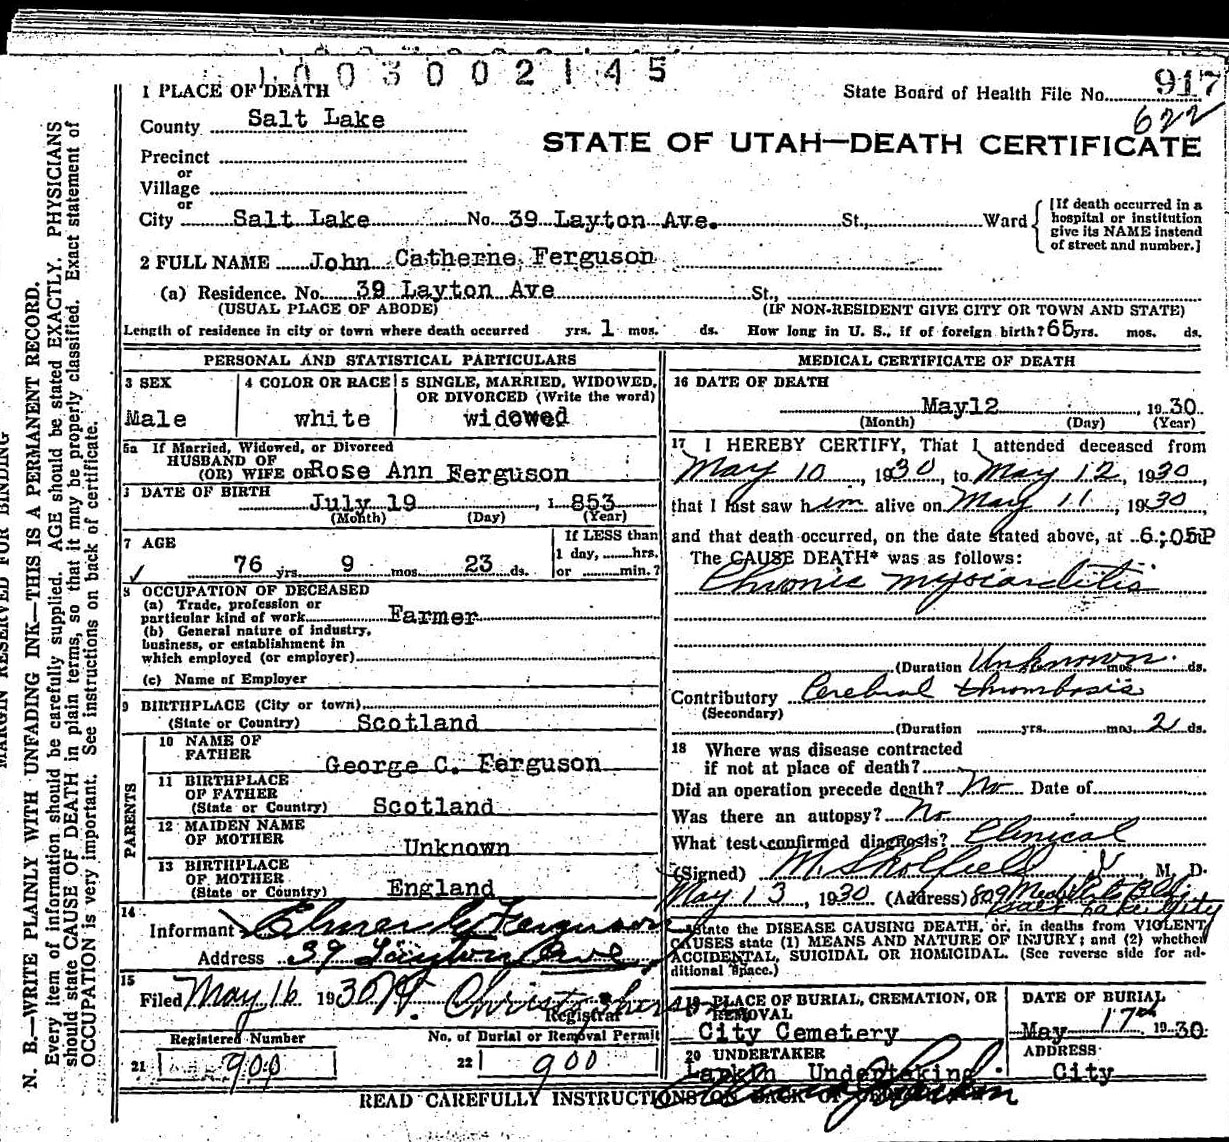 1003002145
1 PLACE OF DEATH
State Board of Health File No. 917
622
County Salt Lake
STATE OF UTAH—DEATH CERTIFICATE
Precinct
or
Village
or
City Salt Lake No. 39 Layton Ave. St., Ward
[If death occurred in a hospital or institution give its NAME instead of street and number.]
2 FULL NAME John Catherne Ferguson
(a) Residence. No. 39 Layton Ave St.,
(USUAL PLACE OF ABODE) (IF NON-RESIDENT GIVE CITY OR TOWN AND STATE)
Length of residence in city or town where death occurred yrs. 1 mos. ds. How long in U. S., if of foreign birth? 65 yrs. mos. ds.
PERSONAL AND STATISTICAL PARTICULARS
3 SEX
Male
4 COLOR OR RACE
white
5 SINGLE, MARRIED, WIDOWED, OR DIVORCED (Write the word)
widowed
5a If Married, Widowed, or Divorced
HUSBAND OF
(OR) WIFE OF Rose Ann Ferguson
DATE OF BIRTH
July 19, 1853
(Month) (Day) (Year)
7 AGE
76 yrs 9 mos 23 ds.
If LESS than
1 day, hrs.
or min.?
8 OCCUPATION OF DECEASED
(a) Trade, profession or
particular kind of work Farmer
(b) General nature of industry,
business, or establishment in
which employed (or employer)
(c) Name of Employer
9 BIRTHPLACE (City or town)
(State or Country) Scotland
PARENTS
10 NAME OF
FATHER George C. Ferguson
11 BIRTHPLACE
OF FATHER
(State or Country) Scotland
12 MAIDEN NAME
OF MOTHER Unknown
13 BIRTHPLACE
OF MOTHER
(State or Country) England
14
Informant Elmer G Ferguson
Address 39 Layton Ave
15
Filed May 16 1930 Christopherson
Registrar
Registered Number
21 900
No. of Burial or Removal Permit
22 900
MEDICAL CERTIFICATE OF DEATH
16 DATE OF DEATH
May12, 1930
(Month) (Day) (Year)
17 I HEREBY CERTIFY, That I attended deceased from
May 10, 1930, to May 12, 1930,
that I last saw him alive on May 11, 1930
and that death occurred, on the date stated above, at 6:05P
The CAUSE DEATH* was as follows:
Chronic myocarditis
(Duration Unknown mos. ds.
Contributory Cerebral thrombosis
(Secondary)
(Duration yrs. mos. 2 ds.
18 Where was disease contracted
if not at place of death?
Did an operation precede death? No Date of
Was there an autopsy? No
What test confirmed diagnosis? Clinical
(Signed) M. D.
May 13, 1930 (Address) 809
Salt Lake City
State the DISEASE CAUSING DEATH, or, in deaths from VIOLENT
CAUSES state (1) MEANS AND NATURE OF INJURY; and (2) whether
ACCIDENTAL, SUICIDAL OR HOMICIDAL. (See reverse side for ad-
ditional space.)
19 PLACE OF BURIAL, CREMATION, OR
REMOVAL
City Cemetery
DATE OF BURIAL
May 17th 1930
20 UNDERTAKER
Larkin Undertaking
ADDRESS
City
READ CAREFULLY INSTRUCTIONS ON BACK OF
MARGIN RESERVED FOR BINDING
N. B.—WRITE PLAINLY WITH UNFADING INK—THIS IS A PERMANENT RECORD.
Every item of information should be carefully supplied. AGE should be stated EXACTLY. PHYSICIANS
should state CAUSE OF DEATH in plain terms, so that it may be properly classified. Exact statement of
OCCUPATION is very important. See instructions on back of certificate.